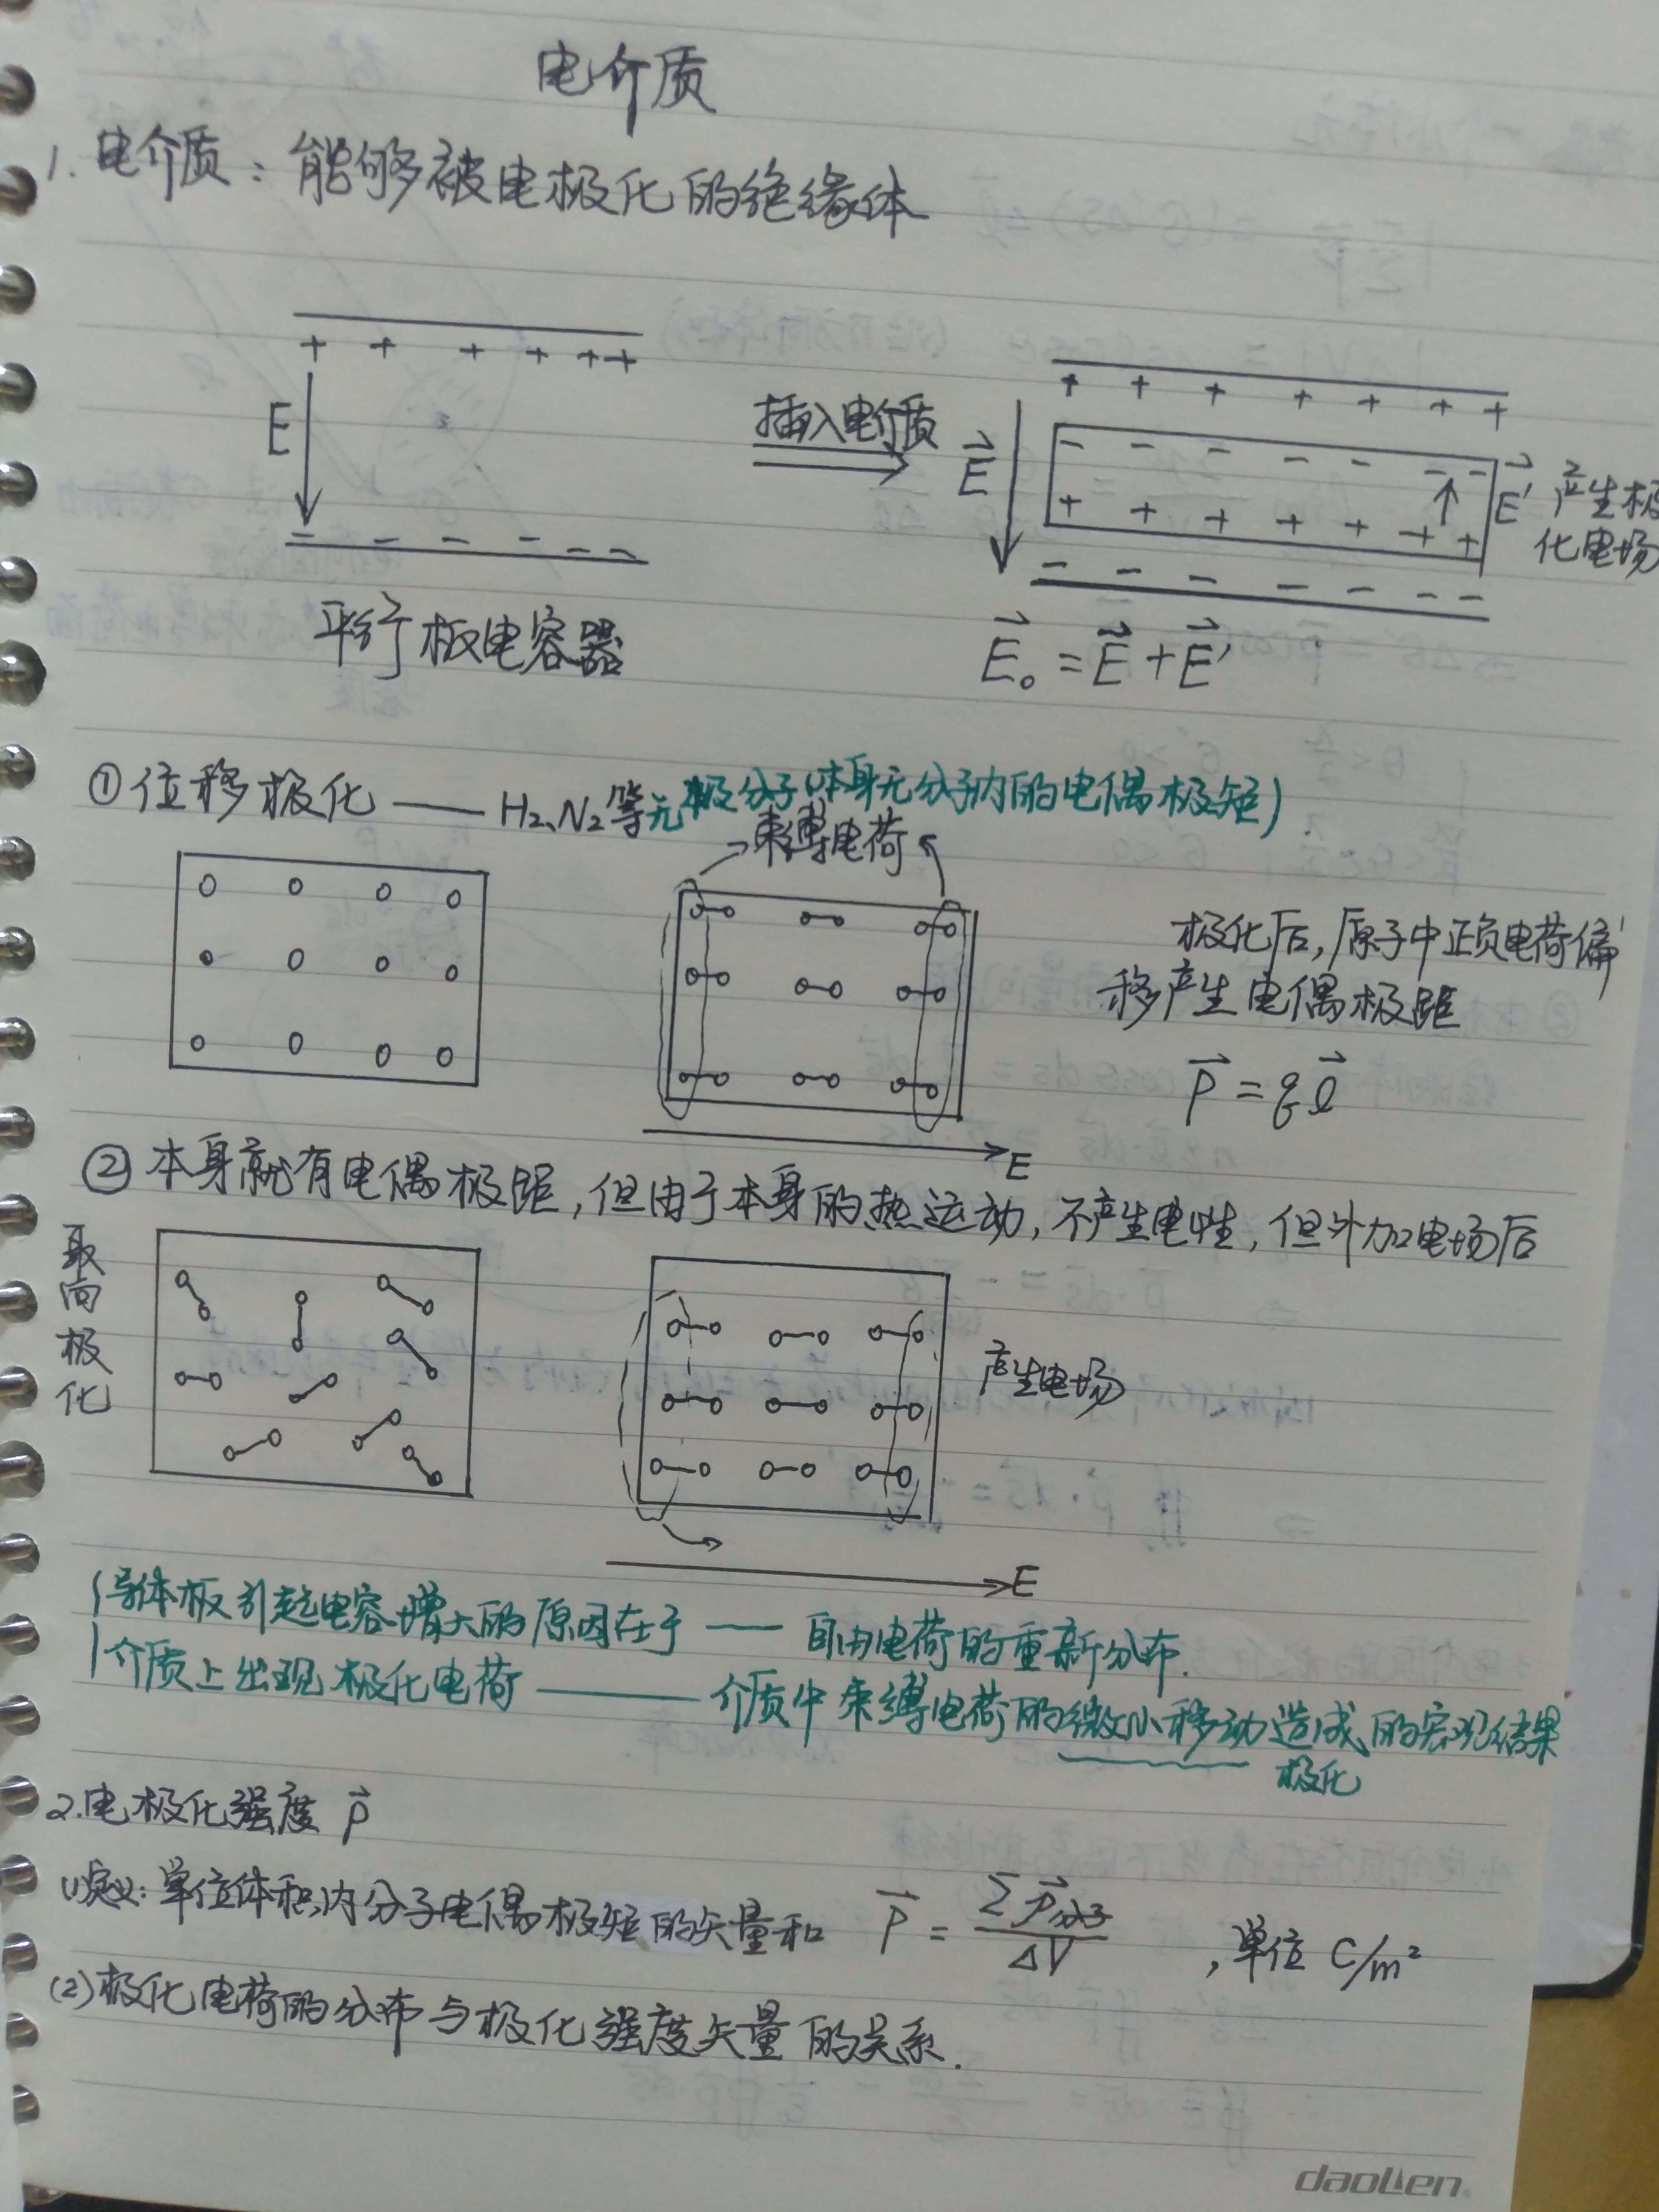 电介质
1. 电介质：能够被电极化的绝缘体
+ + + + + +
E
- - - - - -
平行板电容器
插入电介质
+ + + + + + +
- - - - - - -
+ + + + + + +
- - - - - - -
E⃗
E⃗' 产生极
化电场
E⃗₀ = E⃗ + E⃗'
①位移极化 —— H₂、N₂等无极分子(本身无分子内的电偶极矩).
束缚电荷
极化后,原子中正负电荷偏
移产生电偶极距
P⃗ = qℓ⃗
E
②本身就有电偶极距,但由于本身的热运动,不产生电性,但外加电场后
取向极化
产生电场
E
导体板引起电容增大的原因在于 —— 自由电荷的重新分布.
介质上出现极化电荷 —— 介质中束缚电荷的微小移动造成的宏观结果
极化
2.电极化强度 P⃗
(1)定义:单位体积内分子电偶极矩的矢量和 P⃗ = ΣP⃗分子/ΔV ,单位 C/m²
(2)极化电荷的分布与极化强度矢量的关系.
daolen